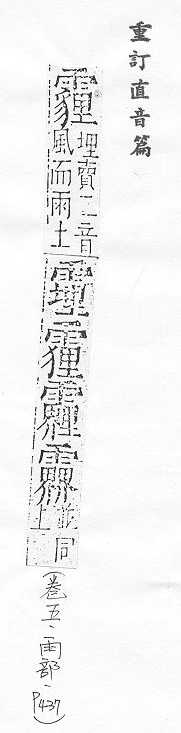 重訂直音篇
霾
埋賣二音
風而雨土
並同
上
(卷五、雨部、P437)